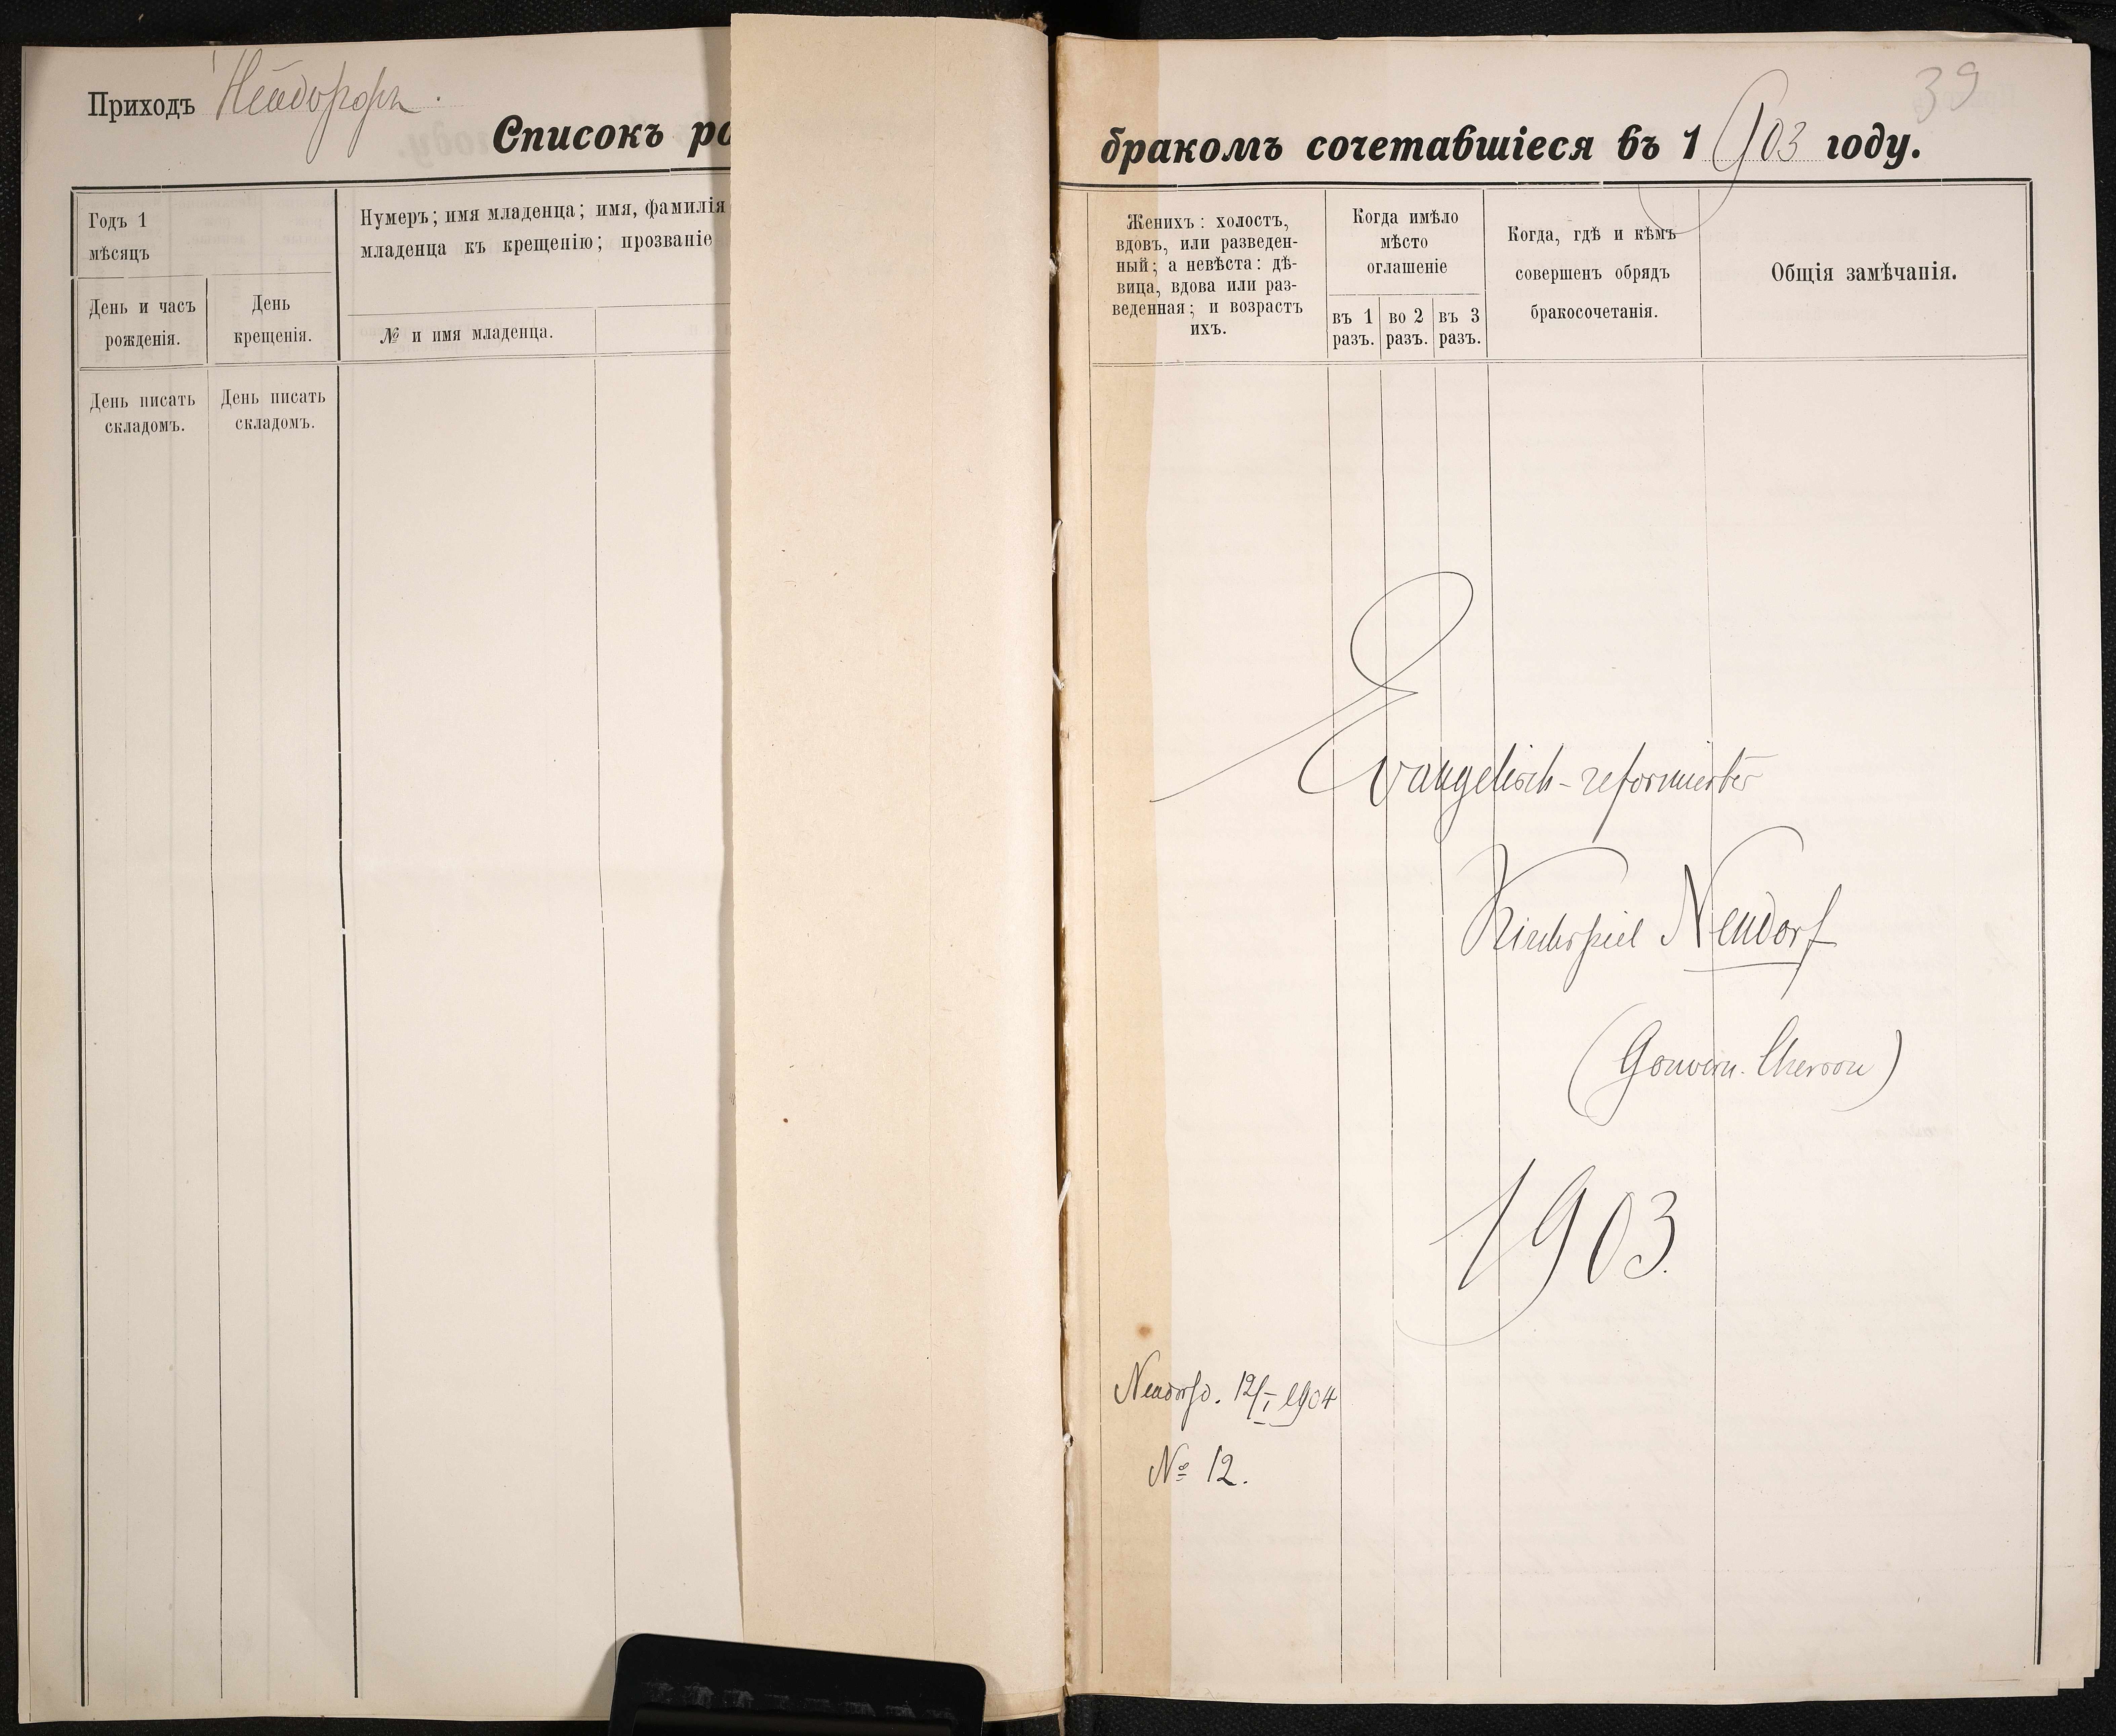 Приходъ Нейдорфъ.
Списокъ ро
Годъ 1
мѣсяцъ
День и часъ
рожденія.
День
крещенія.
Нумеръ; имя младенца; имя, фамилія
младенца къ крещенію; прозваніе
№ и имя младенца.
День писать
складомъ.
День писать
складомъ.
39
бракомъ сочетавшіеся въ 1903 году.
Женихъ: холостъ,
вдовъ, или разведен-
ный; а невѣста: дѣ-
вица, вдова или раз-
веденная; и возрастъ
ихъ.
Когда имѣло
мѣсто
оглашеніе
въ 1
разъ.
во 2
разъ.
въ 3
разъ.
Когда, гдѣ и кѣмъ
совершенъ обрядъ
бракосочетанія.
Общія замѣчанія.
Evangelisch-reformiertes
Kirchspiel Neudorf
(Gouvern. Cherson)
1903.
Neudorf d. 12/I 1904
№ 12.